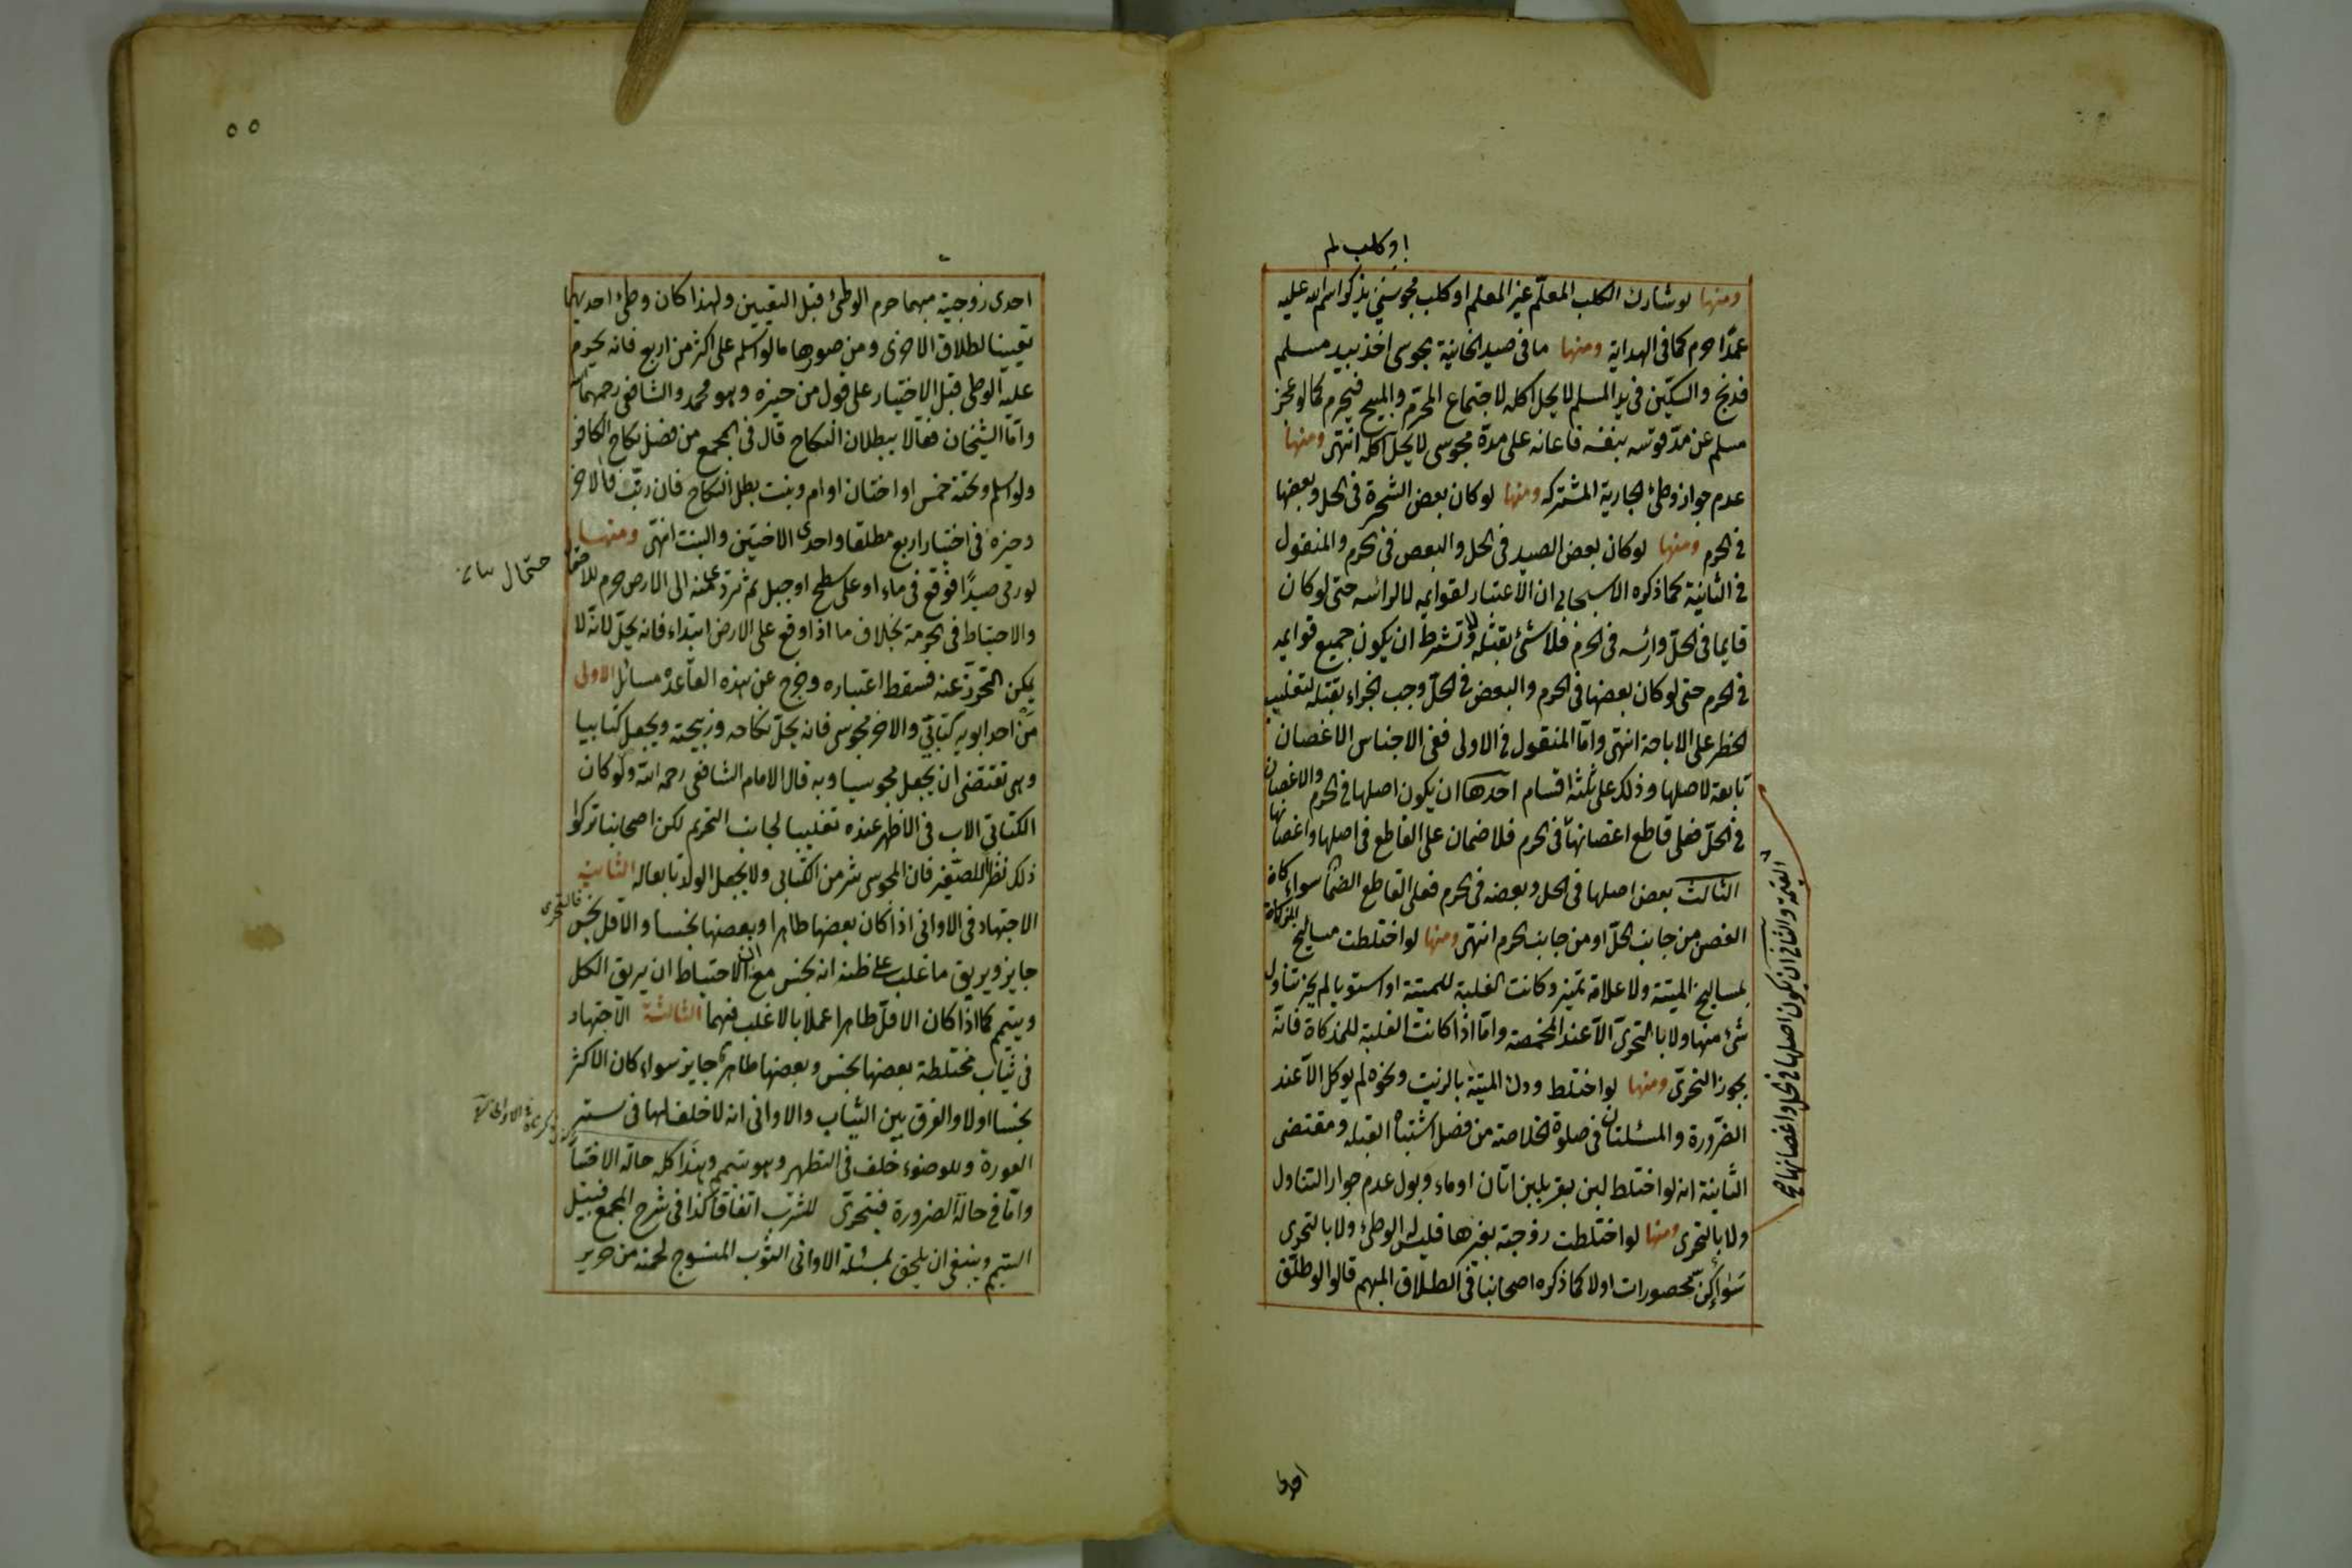 او كلب لم
ومنها لو شارك الكلب المعلّم غير المعلم او كلب مجوسي يذكر اسم الله عليه
عمدًا حرم كما فى الهداية ومنها ما فى صيد الخانية مجوسى اخذ بيد مسلم
فذبح والسكّين فى يد المسلم لا يحل اكله لاجتماع المحرّم والمبيح فيحرم كما لو عجز
مسلم عن مدّ قوسه بنفسه فاعانه على مدّه مجوسى لا يحلّ اكله انتهى ومنها
عدم جواز وطئ الجارية المشتركه ومنها لو كان بعض الشجرة فى الحل وبعضها
فى الحرم ومنها لو كان بعض الصيد فى الحل والبعض فى الحرم والمنقول
فى الثانية كما ذكره الاسبيجابى ان الاعتبار لقوايمه لا لراسه حتى لو كان
قايما فى الحلّ وراسه فى الحرم فلا شئ بقتله ولا تشترط ان يكون جميع قوايمه
فى الحرم حتى لو كان بعضها فى الحرم والبعض فى الحلّ وجب الجزاء بقتله لتغليب
الحظر على الاباحة انتهى وامّا المنقول فى الاولى ففى الاجناس الاغصان
تابعة لاصلها وذلك على ثلثة اقسام احدها ان يكون اصلها فى الحرم والاغصان
فى الحلّ فعلى قاطع اغصانها فى الحرم فلا ضمان على القاطع فى اصلها واغصانها
الثالث بعض اصلها فى الحل وبعضه فى الحرم فعلى القاطع الضمان سواء كان
الغصن من جانب الحلّ او من جانب الحرم انتهى ومنها لو اختلطت مساليخ المذكاة
بمساليخ الميتة ولا علامة تميّز وكانت الغلبة للميتة او استويا لم يجز تناول
شئ منها ولا بالتحرّى الّا عند المخمصة وامّا اذا كانت الغلبة للمذكاة فانّه
يجوز التحرّى ومنها لو اختلط ودك الميتة بالزيت ونحوه لم يوكل الّا عند
الضّرورة والمسئلتان فى صلوة الخلاصة من فصل اشتباه القبله ومقتضى
الثانية انه لو اختلط لبن بقر بلبن اتان او ماء وبول عدم جواز التناول
ولا بالتحرى ومنها لو اختلطت زوجته بغيرها فليس له الوطئ ولا بالتحرى
سواء كنّ محصورات اولا كما ذكره اصحابنا فى الطلاق المبهم قالوا لو طلّق
القيمة والثانى ان يكون اصلها فى الحل واغصانها فى
احدى
٥٥
احدى زوجتيه مبهما حرم الوطئ قبل التعيين ولهذا كان وطئ احديهما
تعيينا لطلاق الاخرى ومن صورها ما لو اسلم على اكثر من اربع فانه يحرم
عليه الوطى قبل الاختيار على قول من خيره وهو محمد والشافعى رحمهما الله
وامّا الشيخان فقالا ببطلان النكاح قال فى المجمع من فصل نكاح الكافر
ولو اسلم وتحته خمس او اختان او ام وبنت بطل النكاح فان رتّب فالاخر
وخيره فى اختيار اربع مطلقا واحدى الاختين والبنت انتهى ومنها
لو رمى صيدًا فوقع فى ماء او على سطح او جبل ثم تردّى منه الى الارض حرم للاحتمال
والاحتياط فى الحرمة بخلاف ما اذا وقع على الارض ابتداء فانه يحلّ لانه لا
يمكن التحرّز عنه فسقط اعتباره وخرج عن هذه القاعده مسائل الاولى
من احد ابويه كتابىّ والاخر مجوسى فانه يحلّ نكاحه وذبيحته ويجعل كتابيا
وهى تقتضى ان يجعل مجوسيا وبه قال الامام الشافعى رحمه الله ولو كان
الكتابىّ الاب فى الاظهر عنده تغليبا لجانب التحريم لكن اصحابنا تركوا
ذلك نظرا للصّغير فان المجوسى شر من الكتابى ولا يجعل الولد تابعا له الثانيه
الاجتهاد فى الاوانى اذا كان بعضها طاهرا وبعضها نجسا والاقل نجس فالتحرى
جايز ويريق ما غلب على ظنه انه نجس مع ان الاحتياط ان يريق الكل
ويتيمم كما اذا كان الاقلّ طاهرا عملا بالاغلب فيهما الثالثة الاجتهاد
فى ثياب مختلطة بعضها نجس وبعضها طاهر جايز سواء كان الاكثر
نجسا اولا والفرق بين الثياب والاوانى انه لا خلف لها فى ستر
العورة وللوضوء خلف فى التطهر وهو تيمم وهذا كله حالة الاختيار
وامّا فى حالة الضرورة فيتحرّى للشرب اتفاقا كذا فى شرح المجمع قبيل
التيمم وينبغى ان يلحق بمسئلة الاوانى الثوب المنسوج لحمته من حرير